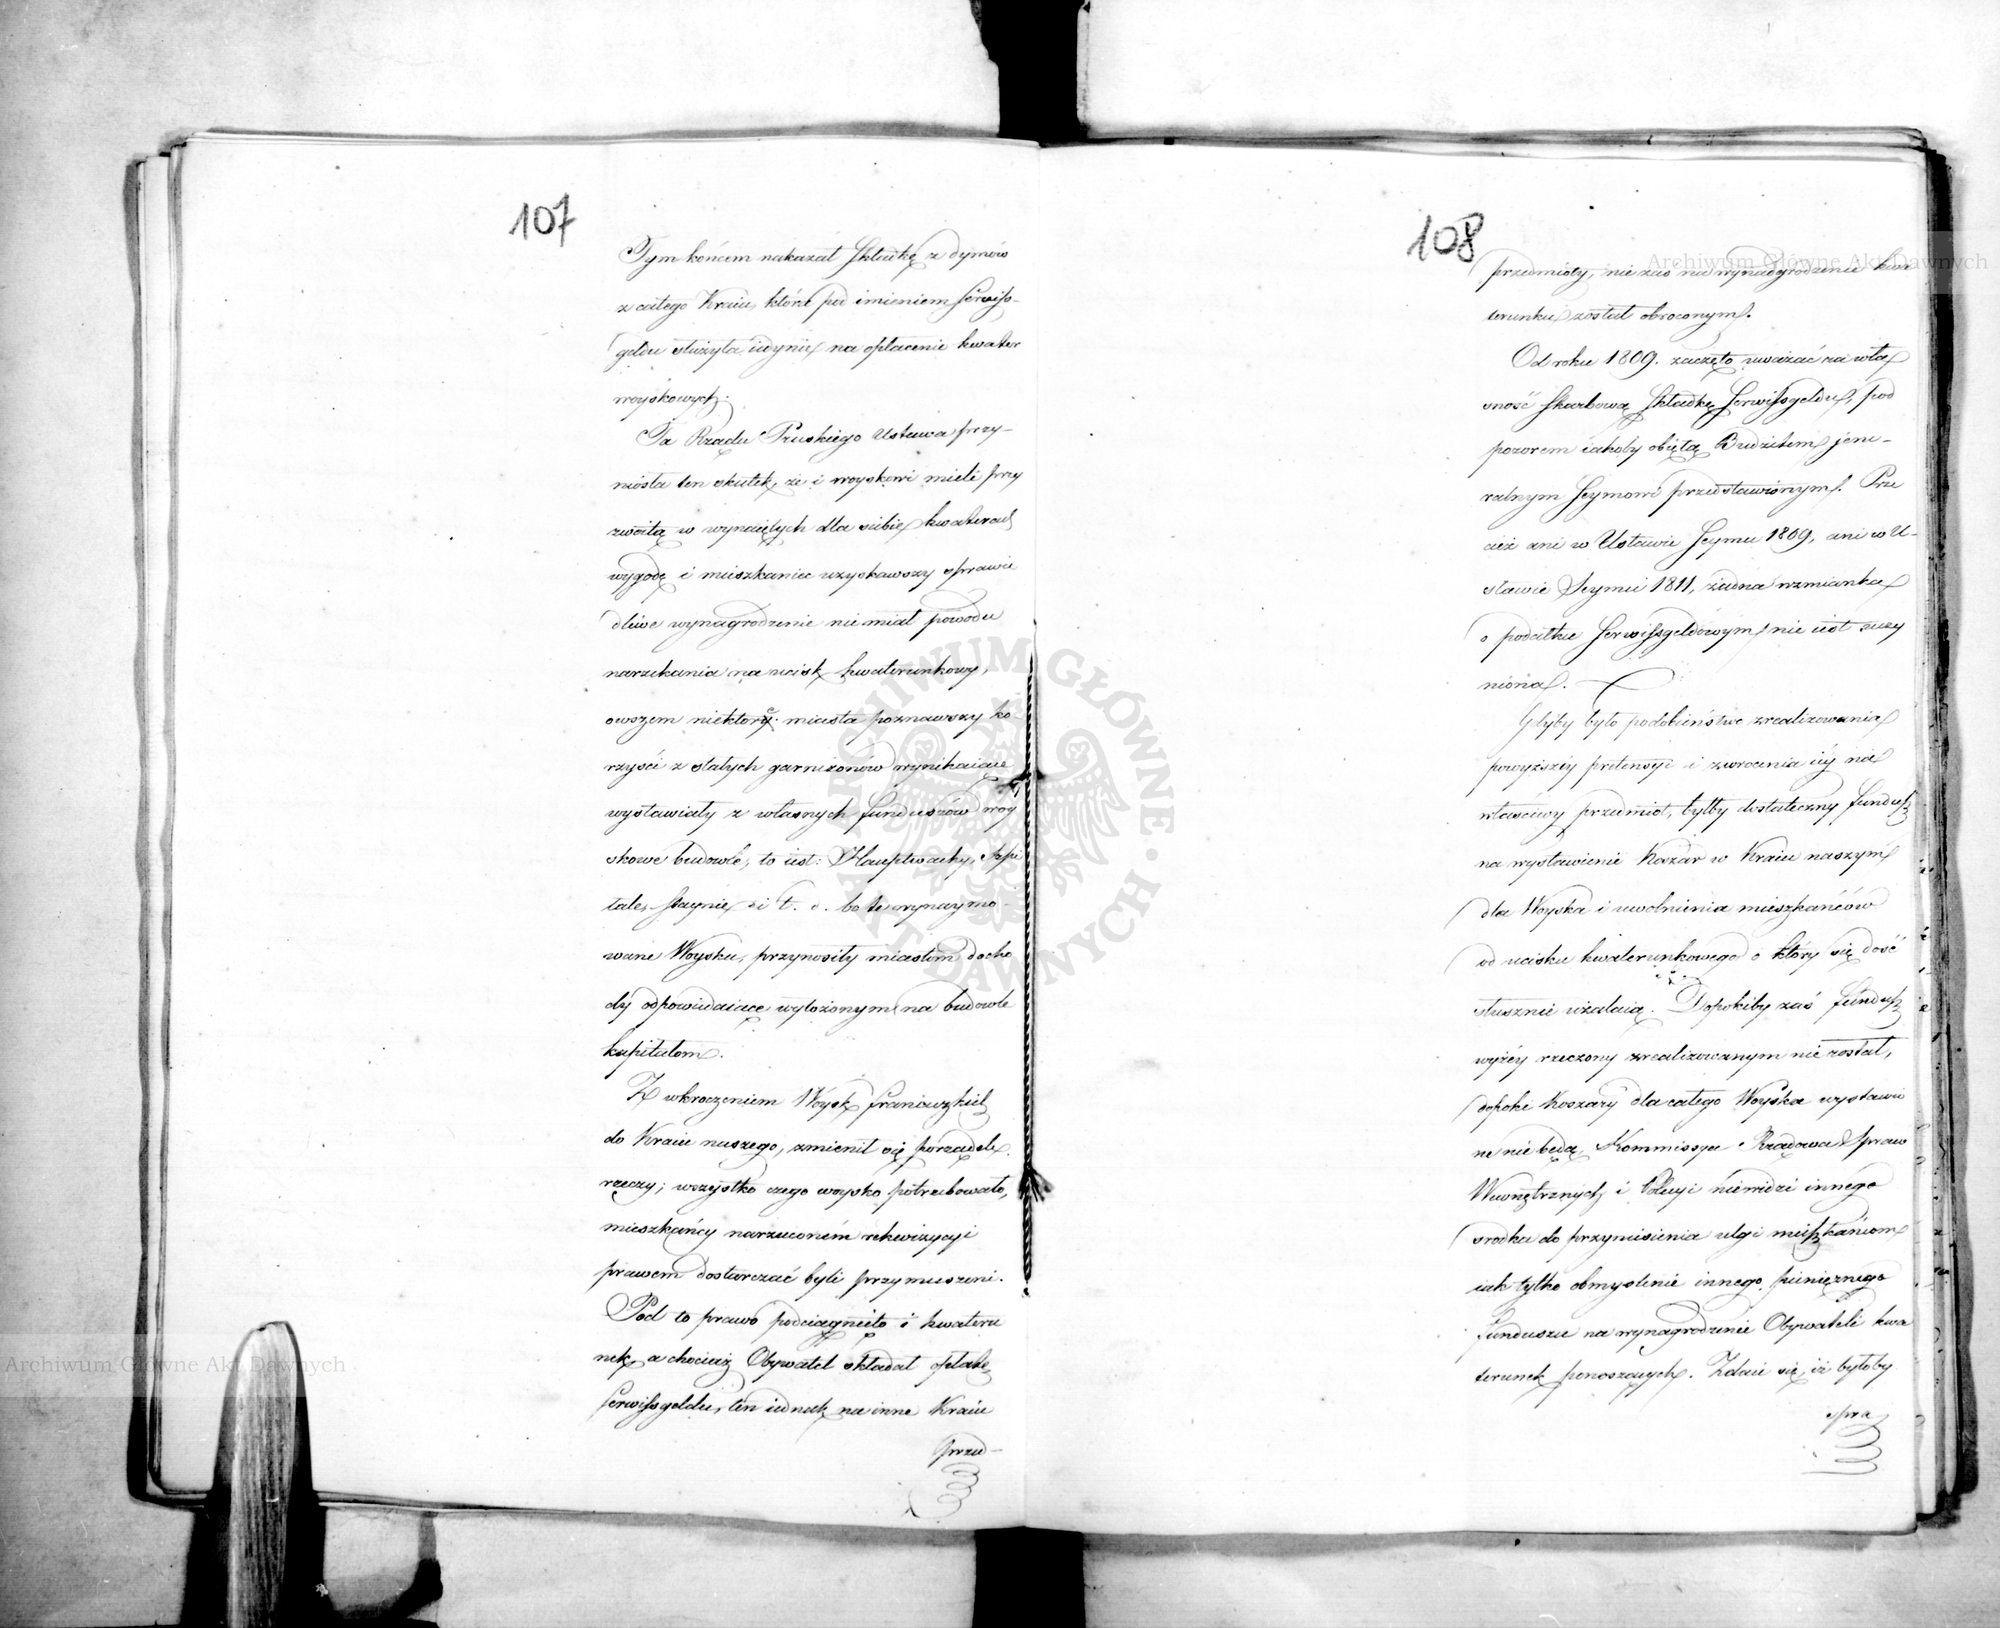 107
Tym końcem nakazał Składkę z dymów
z całego Kraiu, która pod imieniem Serwiss-
geldu służyła iedynie na opłacenie kwater
woyskowych.
Ta Rządu Pruskiego Ustawa przy-
niosła ten skutek, że i woyskowi mieli przy
zwoitą w wynaiętych dla siebie kwaterach
wygodę i mieszkaniec uzyskawszy sprawie
dliwe wynagrodzenie nie miał powodu
narzekania na ucisk kwaterunkowy,
owszem niektóre miasta poznawszy ko-
rzyści z stałych garnizonów wynikaiące
wystawiały z własnych funduszów woy
skowe budowle, to iest: Hauptwachy, Szpi
tale, staynie i t. d. bo te wynaymo-
wane Woysku, przynosiły miastom docho
dy odpowiadaiące wyłożonym na budowle
kapitałom.
Z wkroczeniem Woysk francuzkich
do Kraiu naszego, zmienił się porządek
rzeczy; wszystko czego woysko potrzebowało,
mieszkańcy narzuconem rekwizycyi
prawem dostarczać byli przymuszeni.
Pod to prawo podciągnięto i kwateru
nek, a chociaż Obywatel składał opłatę
Serwissgeldu, ten iednak na inne Kraiu
przed-
108
przedmioty, nie zaś na wynadgrodzenie kwa
terunku został obróconym.
Od roku 1809. zaczęto uważać za wła
sność Skarbową Składkę Serwissgeldu, pod
pozorem iakoby obiętą Budżetem jene-
ralnym Seymowi przedstawionym. Prze
cież ani w Ustawie Seymu 1809, ani w U-
stawie Seymu 1811, żadna wzmianka
o podatku Serwissgeldowym nie iest uczy
niona.
Gdyby było podobieństwo zrealizowania
powyższey pretensyi i zwrócenia iéy na
właściwy przedmiot, byłby dostateczny fundusz
na wystawienie Koszar w Kraiu naszym
dla Woyska i uwolnienia mieszkańców
od ucisku kwaterunkowego o który się dość
słusznie użalaią. Dopokiby zaś fundusz
wyżéy rzeczony zrealizowanym nie został,
dopóki Koszary dla całego Woyska wystawio
ne nie będą, Kommissya Rządowa Spraw
Wewnętrznych i Policyi niewidzi innego
srodka do przyniesienia ulgi mieszkańcom
iak tylko obmyślenie innego pieniężnego
funduszu na wynagrodzenie Obywateli kwa
terunek ponoszących. Zdaie się, iż byłoby
spra
Archiwum Główne Akt Dawnych
Archiwum Główne Akt Dawnych
ARCHIWUM GŁÓWNE AKT DAWNYCH